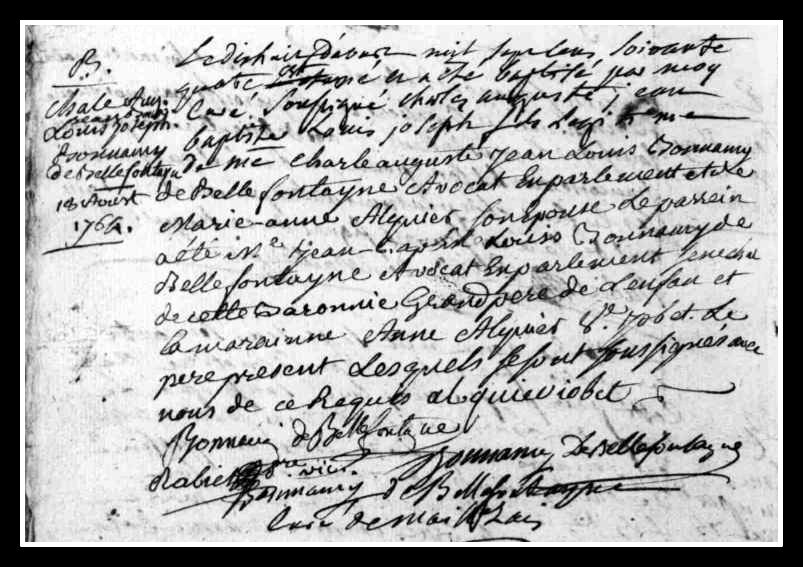 B.
Charle Aug.
Jean bap.
Louis joseph
Bonnamy
de Bellefontayne
18 Aoust
1764.
Le dishuit d'aoust mil sept cens soixante
quatre est né et a été baptisé par moy
Curé soussigné charles auguste jean
baptiste Louis joseph fils Legitime
de me charle auguste jean Louis Bonnamy
de Bellefontayne Avocat En parlement et de
Marie-anne Alquier son epouse Le parrein
a été Me jean baptiste Louis Bonnamy de
Bellefontayne Avocat En parlement senechal
de cette Baronnie Grand pere de L'enfan et
la marainne Anne Alquier Le
pere present Lesquels se sont soussignés avec
nous de ce Requis alquier
Bonnamy de Bellefontayne
Rabier vic.
Bonnamy De Bellefontayne
Bonnamy de Bellefontayne
Curé de Maillezais